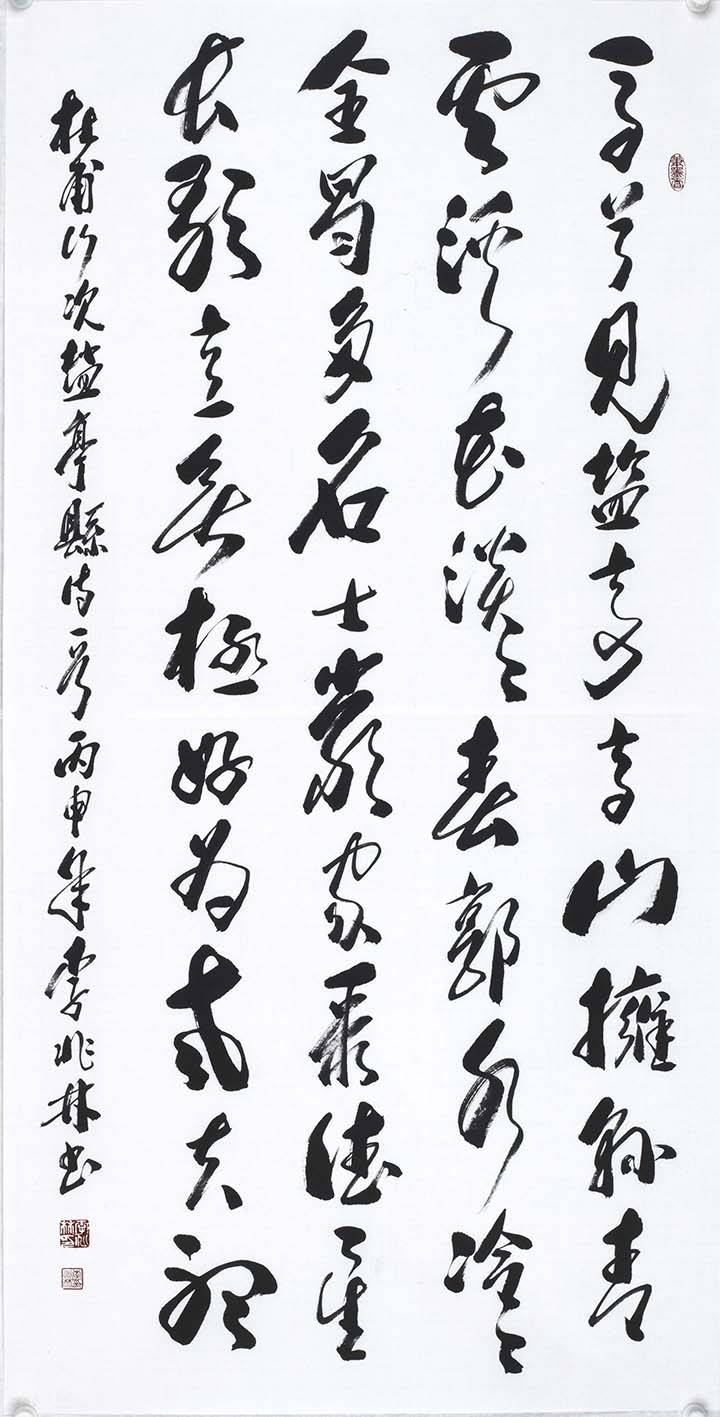 馬首見塩亭高山擁縣青
雲溪花淡〻春郭水泠〻
全蜀多名士嚴家聚德星
長歌意無極好為老夫聽
杜甫行次塩亭縣詩一首丙申年李兆林書